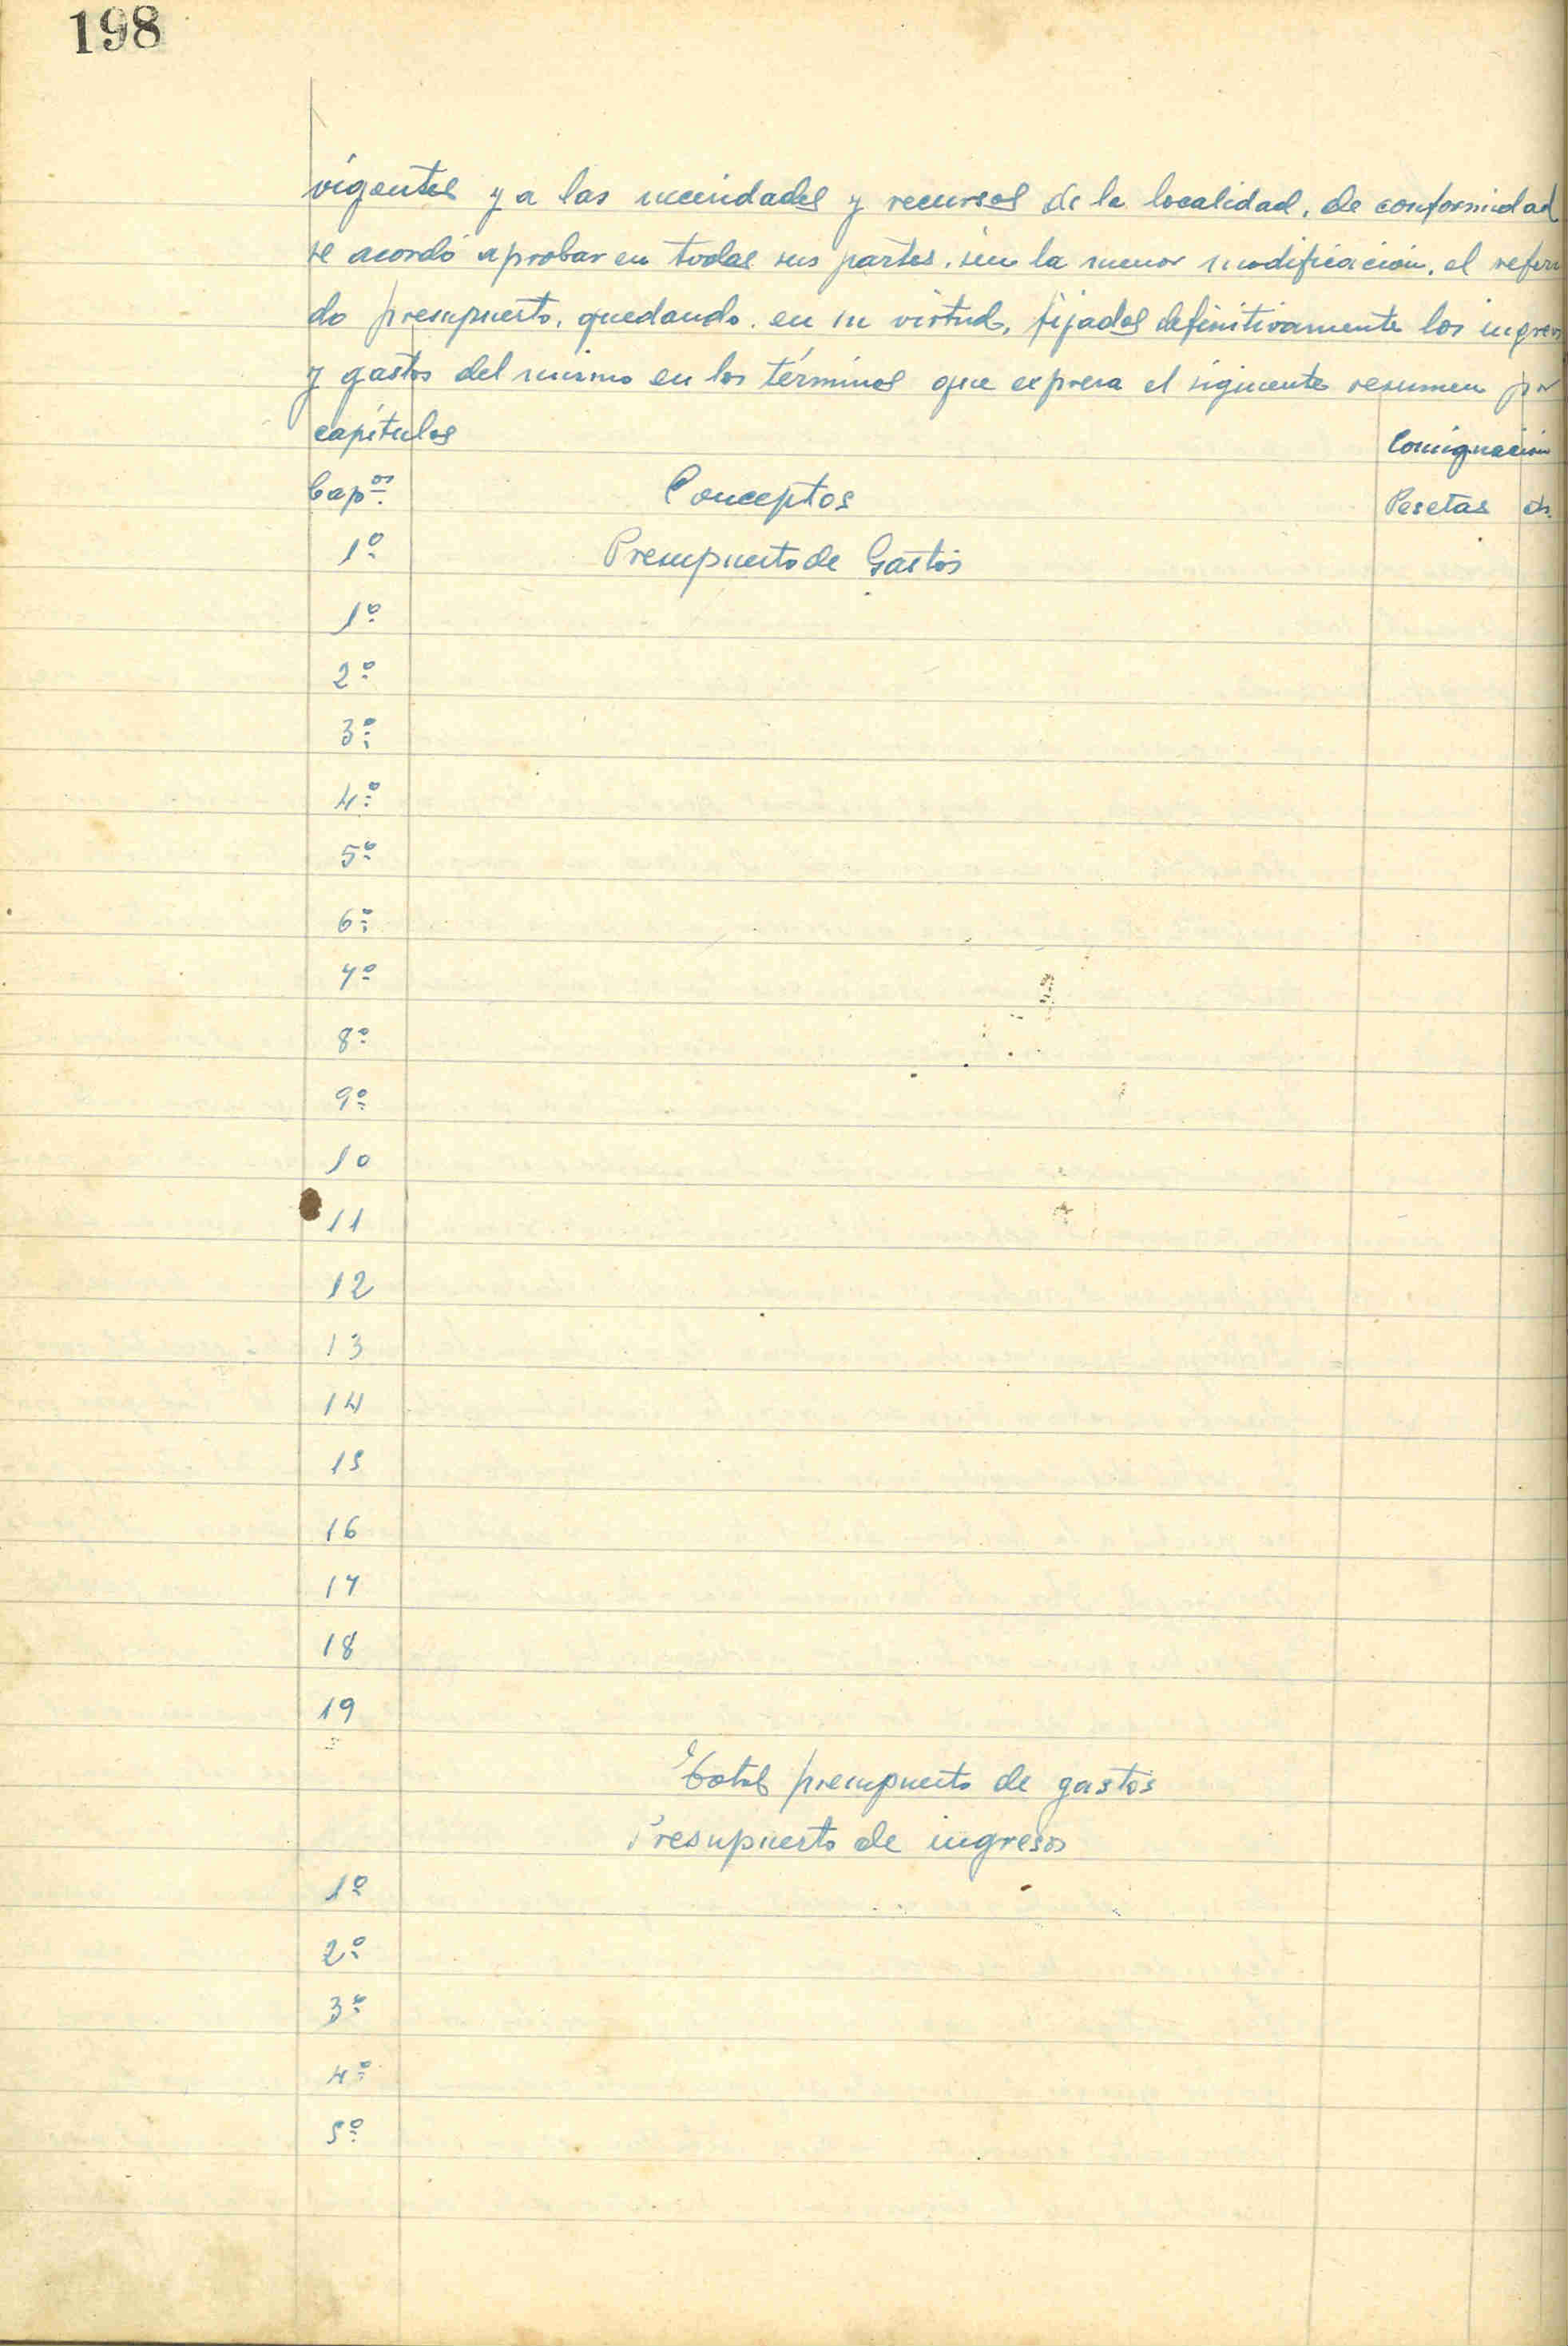 198
vigentes y a las necesidades y recursos de la localidad, de conformidad
se acordó aprobar en todas sus partes, sin la menor modificación, el referi
do presupuesto, quedando, en su virtud, fijados definitivamente los ingresos
y gastos del mismo en los términos que expresa el siguiente resumen por
capítulos
Consignación
Capos Conceptos Pesetas cts.
1º Presupuesto de Gastos
1º
2º
3º
4º
5º
6º
7º
8º
9º
10
11
12
13
14
15
16
17
18
19
Total presupuesto de gastos
Presupuesto de ingresos
1º
2º
3º
4º
5º